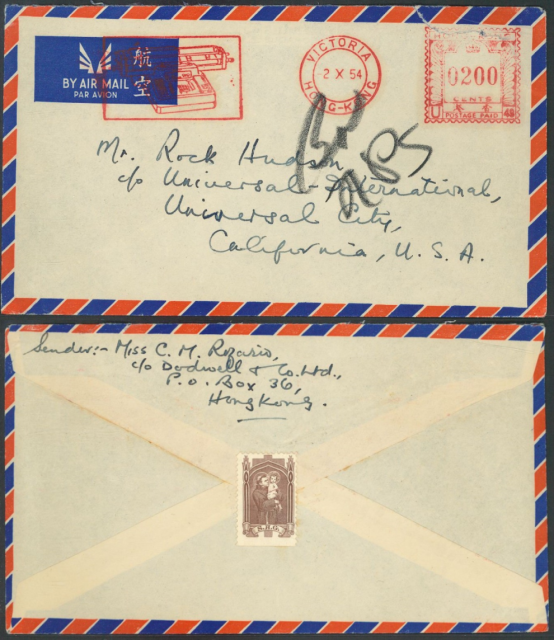 航空
BY AIR MAIL
PAR AVION
VICTORIA
2 X 54
HONG-KONG
0200
CENTS
POSTAGE PAID
Mr. Rock Hudson,
c/o Universal-International,
Universal City,
California, U. S. A.
Sender:- Miss C. M. Rozario,
c/o Dodwell & Co. Ltd.,
P. O. Box 36,
HongKong.